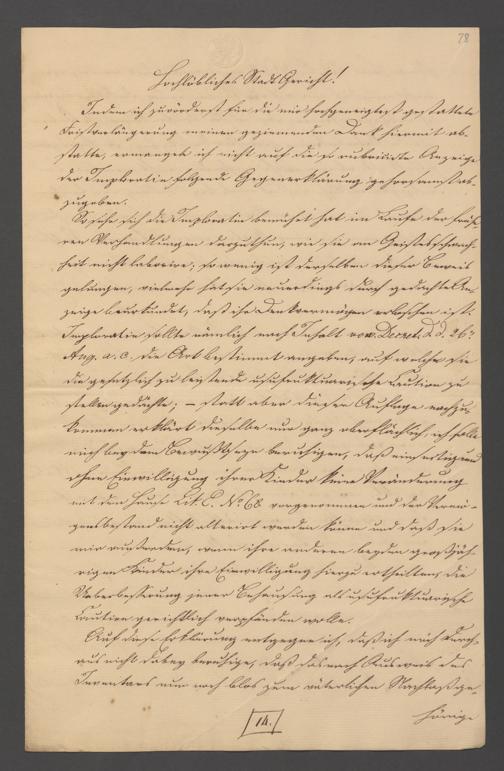 78
Hochlöbliches Stadt Gericht!
Indem ich zuvörderst für die mir hochgeneigtest gestattete
Fristverlängerung meinen geziemenden Dank hiermit ab-
statte, ermangele ich nicht auf die sub rubricirte Anzeige
der Imploratin folgende Gegenerklärung gehorsamst ab-
zugeben.
So sehr sich die Imploratin bemühet hat im Laufe der frühe-
ren Verhandlungen darzuthun, wie sie an Geistesschwach-
heit nicht laborire; so wenig ist derselben dieser Beweis
gelungen, vielmehr hat sie neuerdings durch gedachte An-
zeige beurkundet, daß ihr Denkvermögen erloschen ist.
Imploratin sollte nämlich nach Inhalt ven. Decret. d. d. 26.
Aug. a. c. die Art bestimmt angeben, auf welche sie
die gesetzlich zu leistende usufructuarische Caution zu
stellen gedächte; – statt aber dieser Auflage nachzu-
kommen erklärt dieselbe nur ganz oberflächlich, ich solle
mich bey dem Bewußtseyn beruhigen, daß
ohne Einwilligung ihrer Kinder keine Veränderung
mit dem Hause Lit. C. No 68 vorgenommen und der Vermö-
gensbestand nicht alterirt werden könne und daß sie
mir außerdem, wenn ihre anderen beyden großjäh-
rigen Kinder ihre Einwilligung hierzu ertheilten, die
Ueberbesserung jener Behausung als usufructuarische
Caution gerichtlich verpfänden wolle.
Auf diese Erklärung entgegne ich, daß ich mich durch-
aus nicht dabey beruhige, daß das nach Ausweis des
Inventars nun noch blos zum väterlichen Nachlaß ge-
hörige
14.